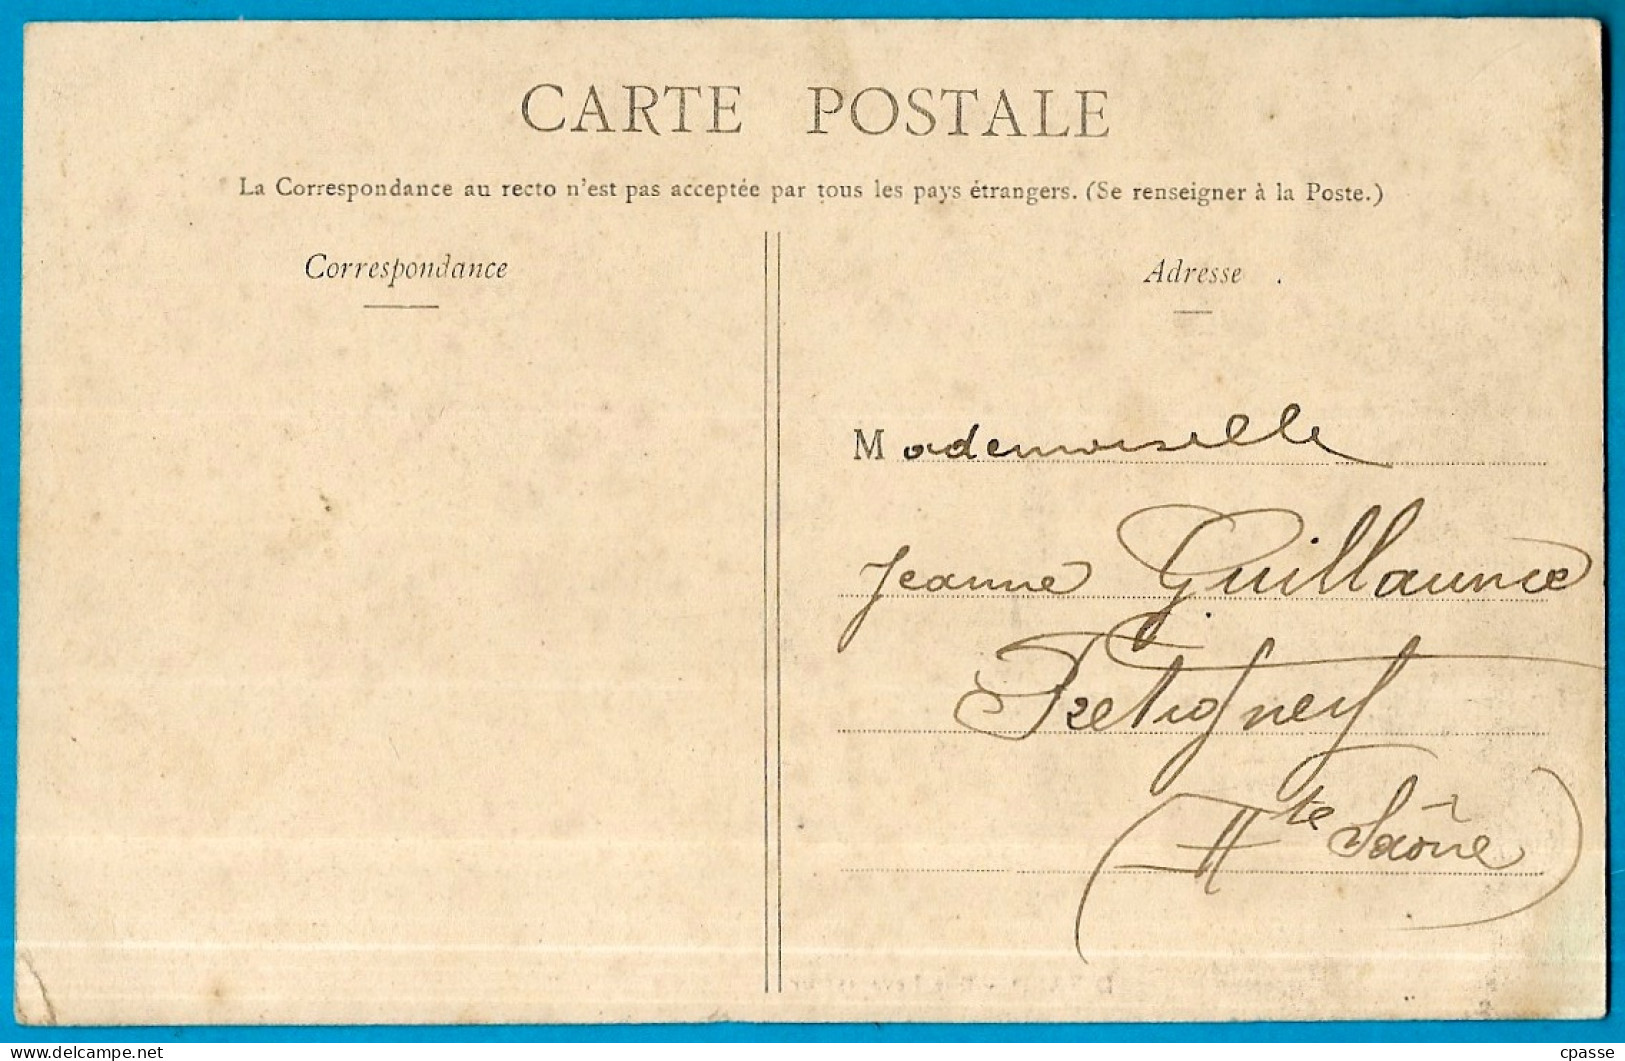 CARTE POSTALE
La Correspondance au recto n'est pas acceptée par tous les pays étrangers. (Se renseigner à la Poste.)
Correspondance
Adresse .
Mademoiselle
Jeanne Guillaume
Fretigney
(Hte Saône)
delcampe.net
cpasse